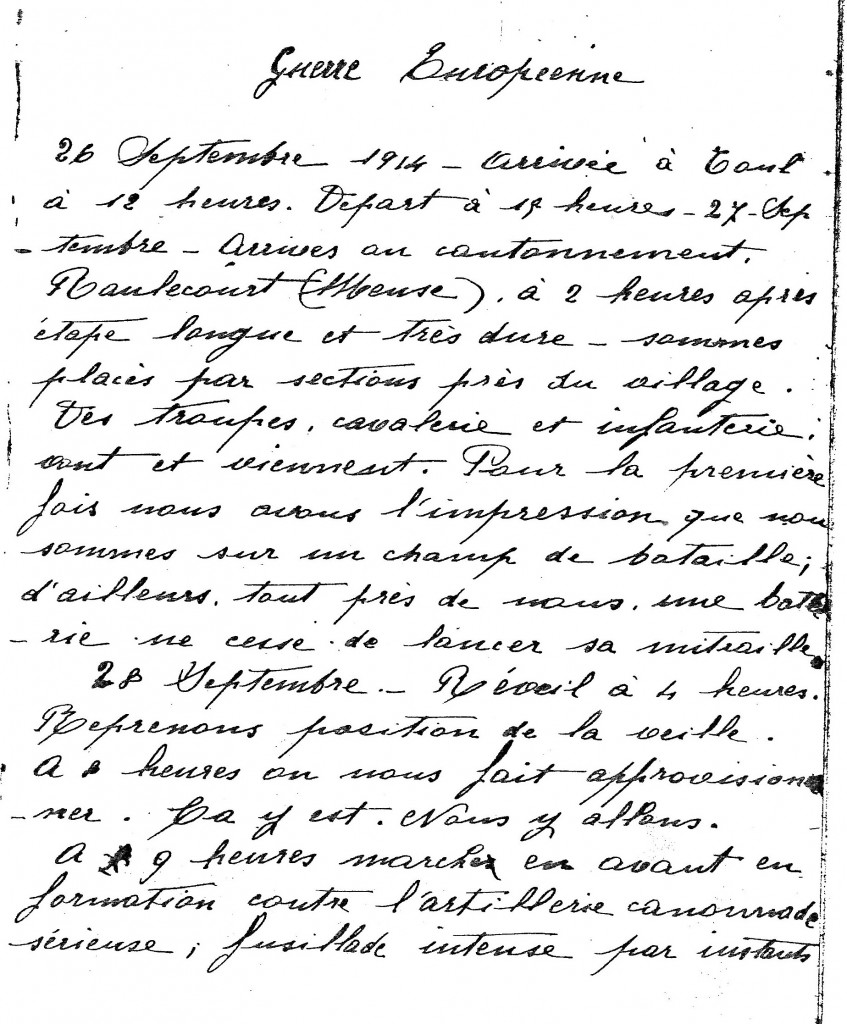 Guerre Européenne
26 Septembre 1914 - Arrivée à Toul
à 12 heures. Départ à 15 heures - 27 - Sep
- tembre - Arrivés au cantonnement.
Raulecourt (Meuse), à 2 heures après
étape longue et très dure - sommes
placés par sections près du village.
Des troupes, cavalerie et infanterie,
vont et viennent. Pour la première
fois nous avons l'impression que nou
sommes sur un champ de bataille;
d'ailleurs, tout près de nous, une batte
- rie ne cesse de lancer sa mitraille.
28 Septembre. - Réveil à 4 heures.
Reprenons position de la veille.
A 8 heures on nous fait approvision
- ner. Ca y est. Nous y allons.
A 9 heures marche en avant en
formation contre l'artillerie canonnade
sérieuse; fusillade intense par instants